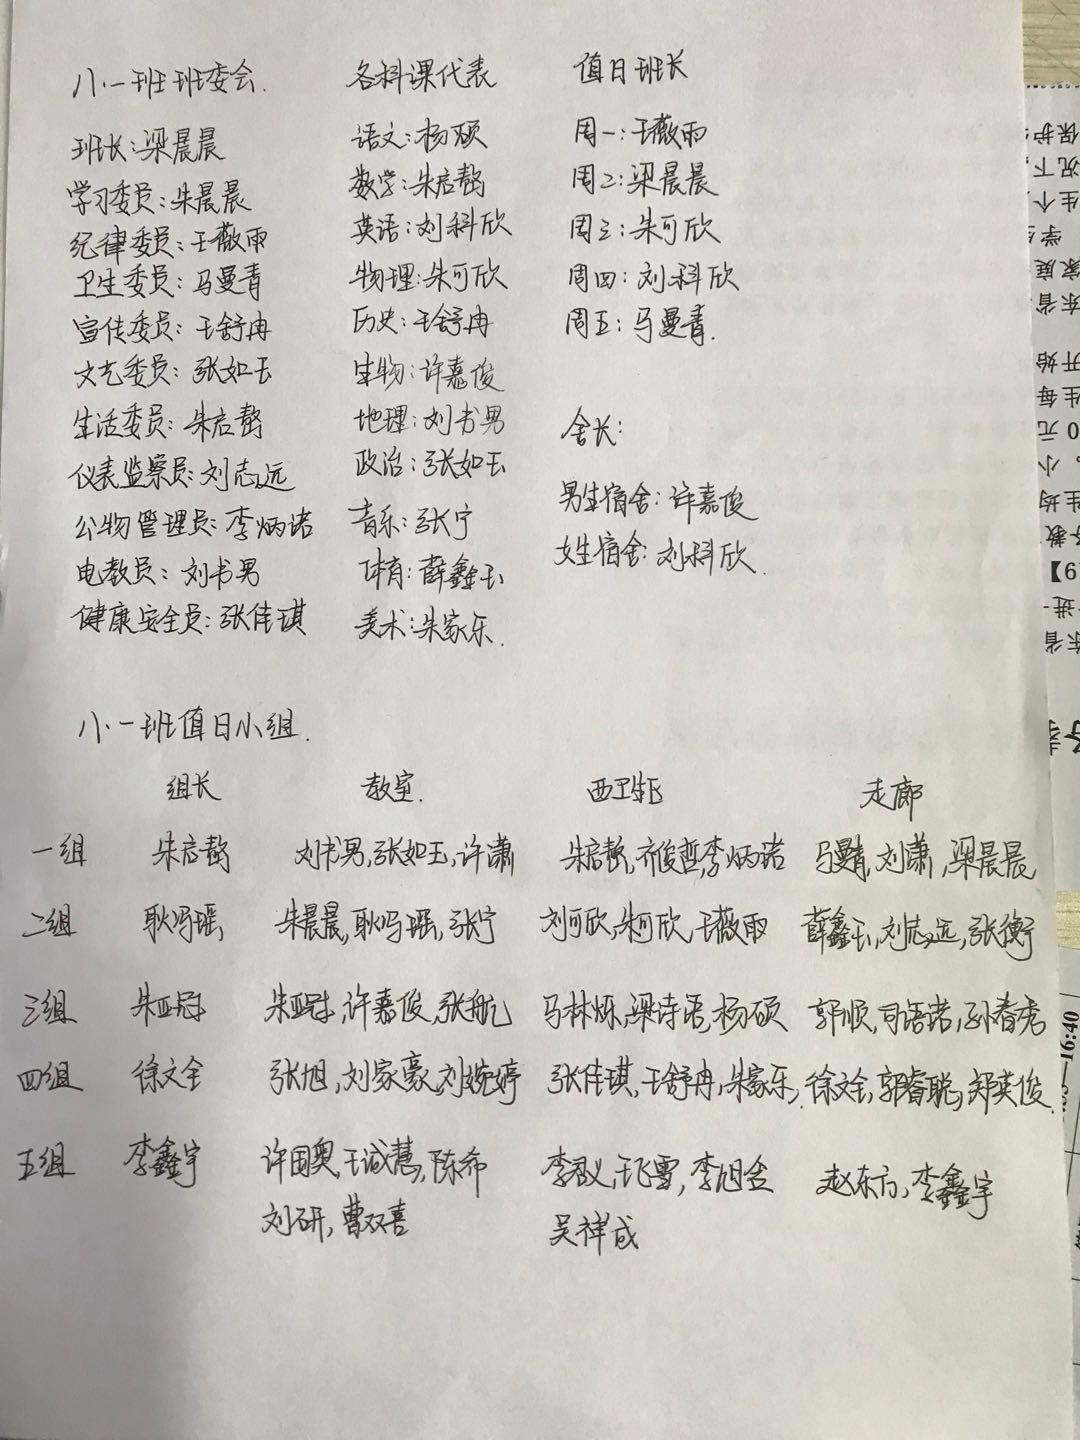 八.一班班委会.
班长:梁晨晨
学习委员:朱晨晨
纪律委员:王薇雨
卫生委员:马曼青
宣传委员:王舒冉
文艺委员:张如玉
生活委员:朱启懿
仪表监察员:刘志远
公物管理员:李炳诺
电教员:刘书男
健康安全员:张佳琪
各科课代表
语文:杨硕
数学:朱启懿
英语:刘科欣
物理:朱可欣
历史:王舒冉
生物:许嘉俊
地理:刘书男
政治:张如玉
音乐:张宁
体育:薛鑫玉
美术:朱家乐.
值日班长
周一:王薇雨
周二:梁晨晨
周三:朱可欣
周四:刘科欣
周五:马曼青.
舍长:
男生宿舍:许嘉俊
女生宿舍:刘科欣.
八.一班值日小组.
组长 教室. 西卫生区 走廊
一组 朱启懿 刘书男,张如玉,许潇 朱启懿,齐俊哲,李炳诺 马曼青,刘潇,梁晨晨
二组 耿冯瑶 朱晨晨,耿冯瑶,张宁 刘可欣,朱可欣,王薇雨 薛鑫玉,刘志远,张衡
三组 朱亚冠 朱亚冠,许嘉俊,张航 马林烁,梁诗语,杨硕 郭顺,司语诺,孙春秀
四组 徐文全 张旭,刘家豪,刘婉婷 张佳琪,王舒冉,朱家乐, 徐文全,郭睿聪,郑英俊
五组 李鑫宇 许国奥,王诚慧,陈希 李君义,王飞雪,李旭含 赵东方,李鑫宇
刘研,曹双喜 吴祥成
16:40